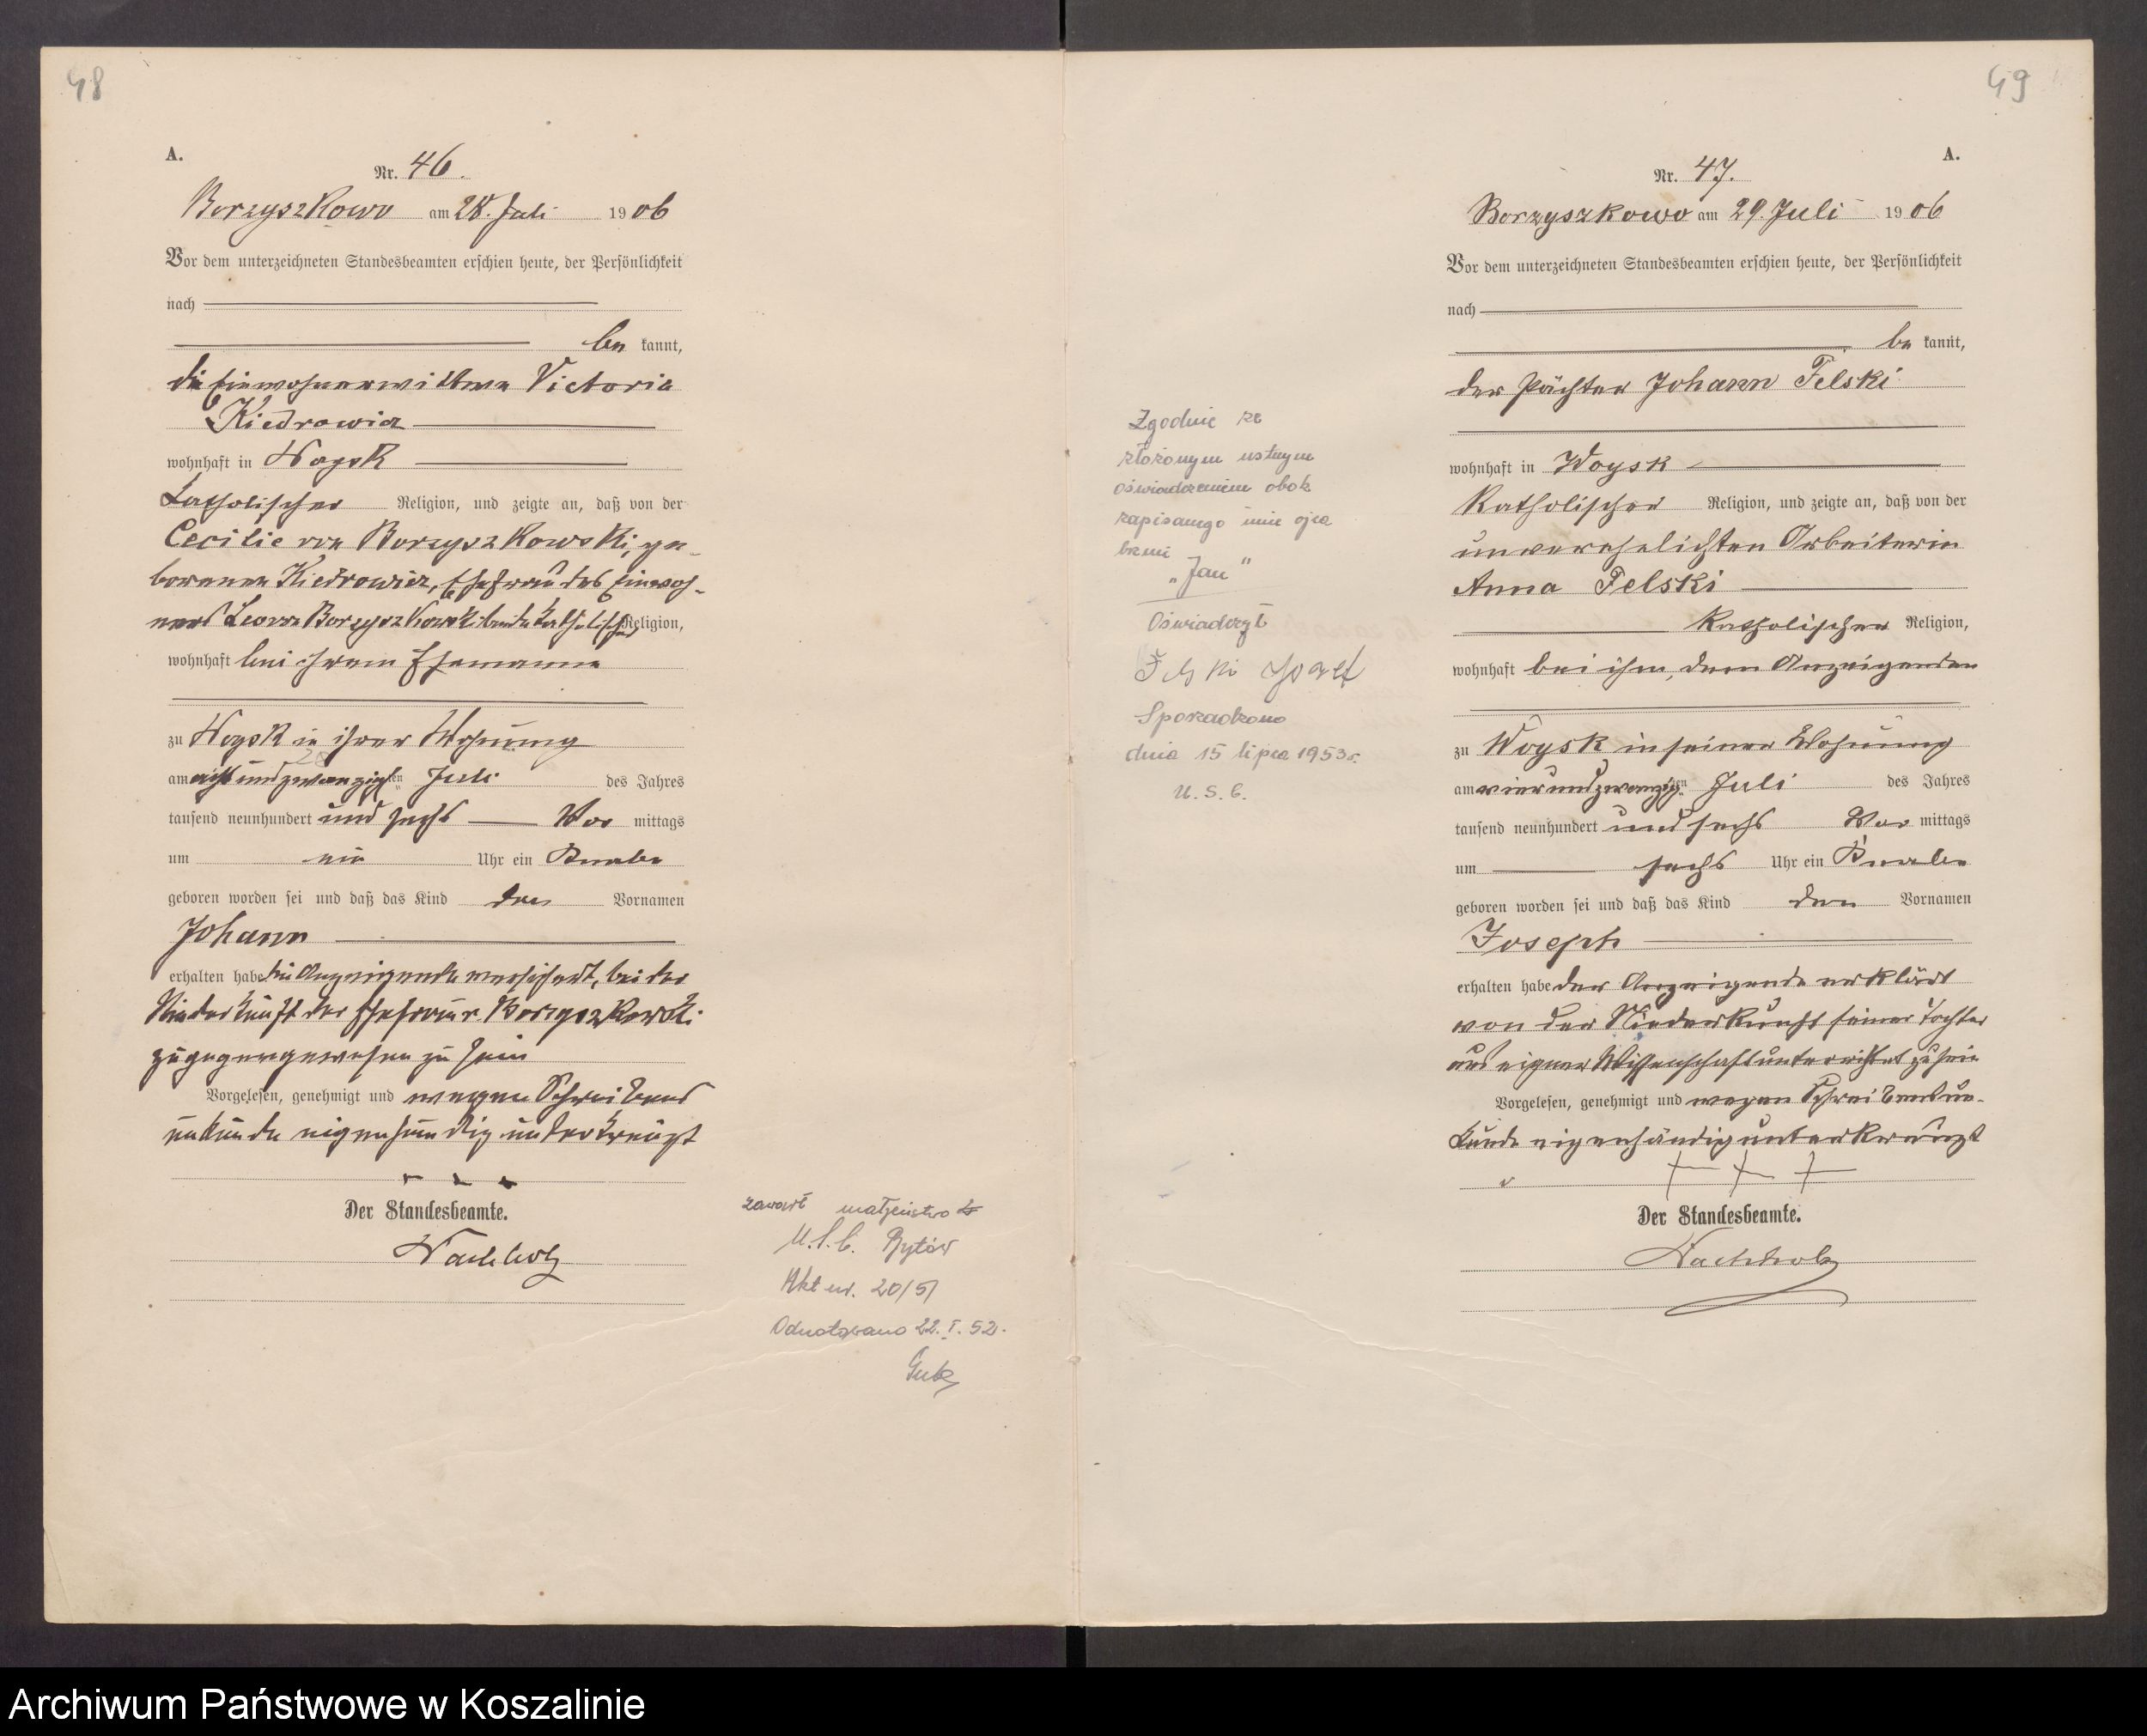 48
A.
Nr. 46.
Borzyszkowo am 28. Juli 1906
Vor dem unterzeichneten Standesbeamten erschien heute, der Persönlichkeit
nach
be kannt,
die Einwohnerwittwe Victoria
Kiedrowicz
wohnhaft in Woysk
katholischer Religion, und zeigte an, daß von der
Cecilie von Borzyszkowski, ge-
borenen Kiedrowicz, Ehefrau des Einwoh-
ners Leo von Borzyszkowski beide katholischer Religion,
wohnhaft bei ihrem Ehemanne
zu Woysk in ihrer Wohnung
am acht und zwanzigsten Juli des Jahres
tausend neunhundert und sechs Vor mittags
um ein Uhr ein Knabe
geboren worden sei und daß das Kind den Vornamen
Johann
erhalten habe die Anzeigende versichert, bei der
Niederkunft der Ehefrau v. Borzyszkowski
zugegen gewesen zu sein
Vorgelesen, genehmigt und wegen Schreibens
unkunde eigenhändig unterkreuzt
+ + +
Der Standesbeamte.
Nachholz
zawarł małżeństwo
U.S.C. Bytów
Akt nr. 20/51
Odnotowano 22.I.52.
49
A.
Nr. 47.
Borzyszkowo am 29. Juli 1906
Vor dem unterzeichneten Standesbeamten erschien heute, der Persönlichkeit
nach
be kannt,
der Pächter Johann Felski
wohnhaft in Woysk
katholischer Religion, und zeigte an, daß von der
unverehelichten Arbeiterin
Anna Felski
katholischer Religion,
wohnhaft bei ihm, dem Anzeigenden
zu Woysk in seiner Wohnung
am vierundzwanzigsten Juli des Jahres
tausend neunhundert und sechs Vor mittags
um sechs Uhr ein Knabe
geboren worden sei und daß das Kind den Vornamen
Joseph
erhalten habe der Anzeigende erklärt
von der Niederkunft seiner Tochter
aus eigner Wissenschaft unterrichtet zu sein
Vorgelesen, genehmigt und wegen Schreibensun-
kunde eigenhändig unterkreuzt
+ + +
Der Standesbeamte.
Nachholz
Zgodnie ze
złożonym ustnym
oświadczeniem obok
zapisanego imie ojca
brzmi
„Jan"
Oświadczył
Felski Józef
Sporządzono
dnia 15 lipca 1953 r.
U.S.C.
Archiwum Państwowe w Koszalinie